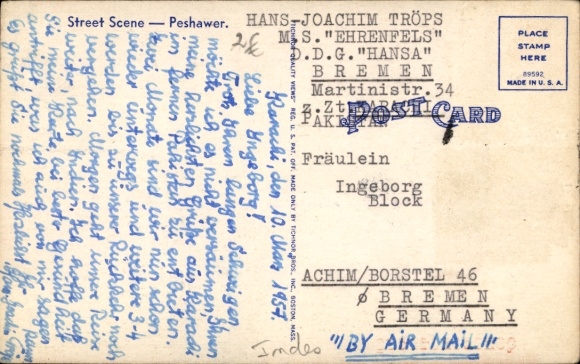 Street Scene — Peshawer.
HANS-JOACHIM TRÖPS
M.S."EHRENFELS"
D.D.G."HANSA"
BREMEN
Martinistr.34
z.Zt.KARACHI
PAKISTAN
PLACE
STAMP
HERE
89592
MADE IN U. S. A.
POST CARD
Fräulein
Ingeborg
Block
ACHIM/BORSTEL 46
BREMEN
GERMANY
"BY AIR MAIL"
"TICHNOR QUALITY VIEWS" REG. U. S. PAT. OFF. MADE ONLY BY TICHNOR BROS., INC., BOSTON, MASS.
Karachi, den 10. März 1957.
Liebe Ingeborg!
Trotz Ihrem langen Schweigen
möchte ich es nicht versäumen, Ihnen
meine herzlichsten Grüße aus Karachi
im fernen Pakistan zu entbieten.
Monate sind wir nun schon
wieder unterwegs und weitere 3-4
werden es zu unserer Rückkehr noch
werden. Morgen geht unsere Reise
weiter, nach Indien. Ich hoffe daß
Sie meine Karte bei bester Gesundheit
antrifft, was ich auch von mir sagen
Es grüßt Sie nochmals herzlichst Ihr
Indes